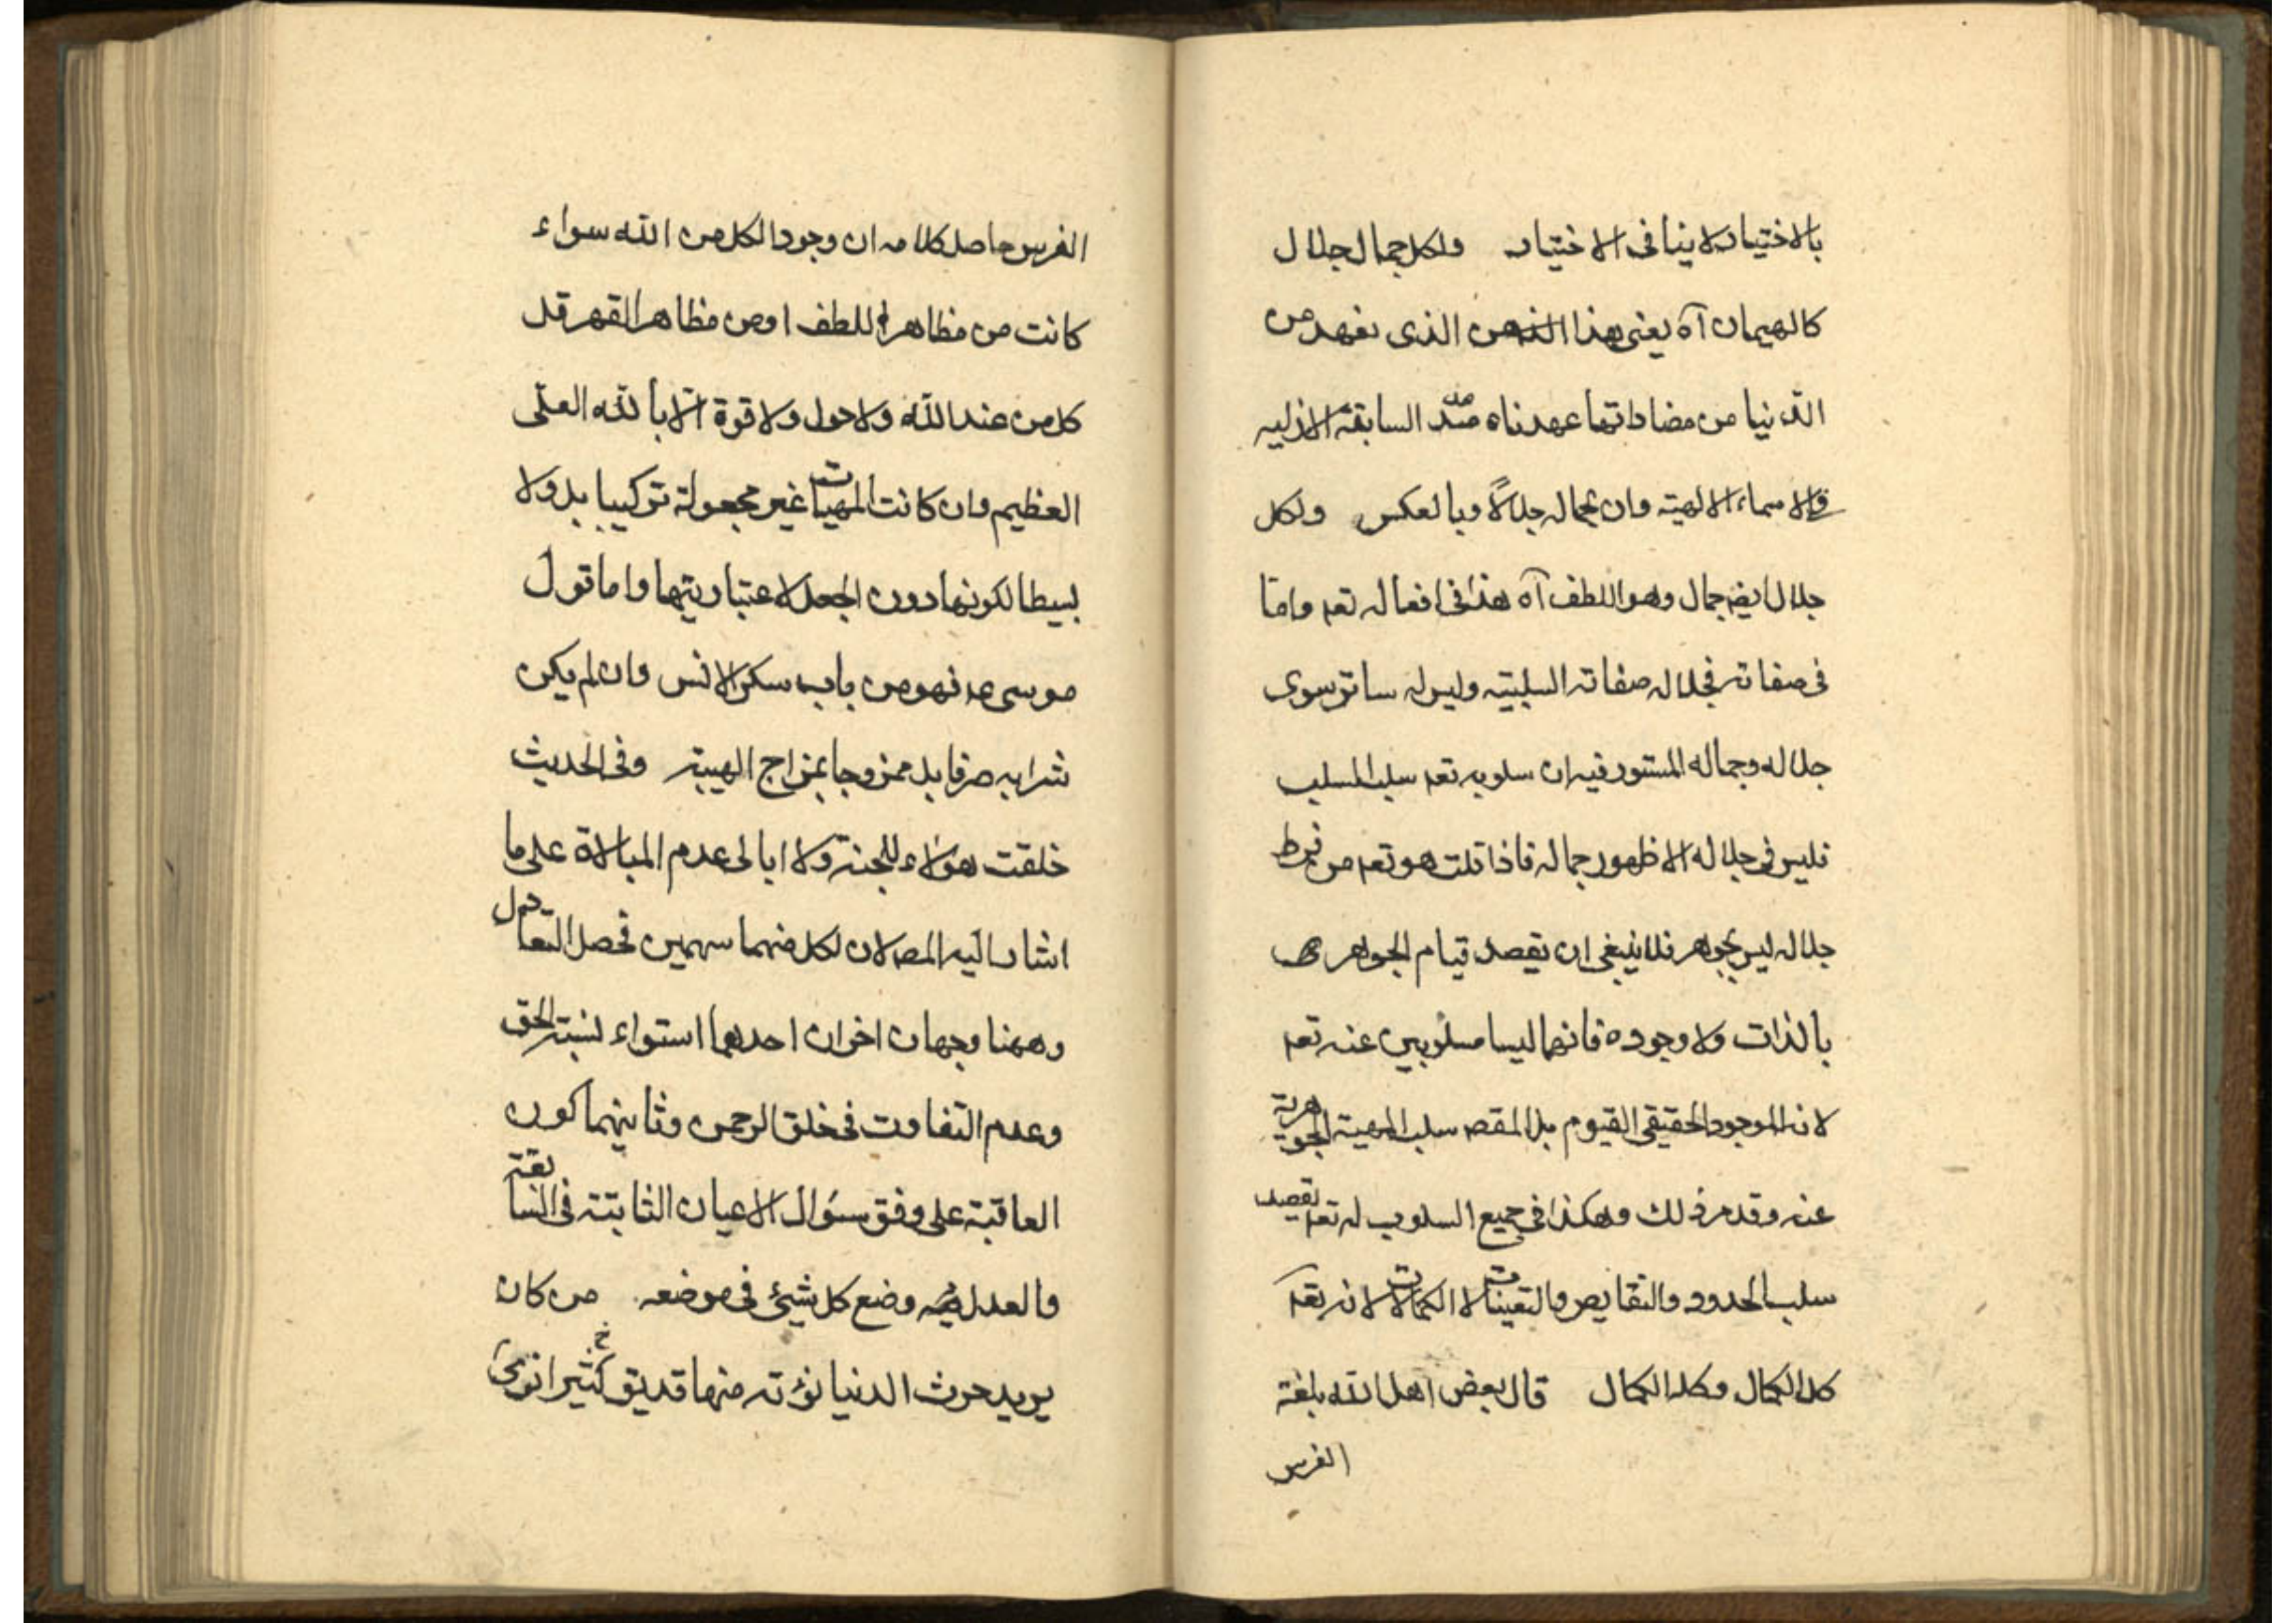 بالاختيار لاينافى الاختيار ولكل جمال جلال
كالهيمان آه يعنى هذا الذى نفهد من
الدنيا من مضاداتها عهدناه منذ السابقة الازلية
والاسماء الالهية وان لجماله جلالاً وبالعكس ولكل
جلال ايضا جمال وهو اللطف آه هذا فى افعاله تعه واما
فى صفاته فجلاله صفاته السلبيته وليس له ساتر سوى
جلاله وجماله المستور فيه ان سلوبه تعه سلب السلب
فليس فى جلاله الا ظهور جماله فاذا قلت هو تعه من فرط
جلاله ليس بجواهر فلا ينبغى ان تقصد قيام الجواهر
بالذات ولا وجوده فانهما ليسا مسلوبين عنه تعه
لانه الموجود الحقيقى القيوم بل المقصه سلب المهية الجوهرية
عنه وقد مر ذلك وهكذا فى جميع السلوب له تعه تقصد
سلب الحدود والنقايص والتعينات لا الكمالات لانه تعه
كل الكمال وكله الكمال قال بعض اهل الله بلغة
الفرس
الفرس حاصل كلامه ان وجود الكل من الله سواء
كانت من مظاهر اللطف او من مظاهر القهر قل
كل من عند الله ولا حول ولا قوة الا بالله العلى
العظيم وان كانت المهيات غير مجعولة تركيبا بل ولا
بسيطا لكونها دون الجعل لاعتباريتها واما قول
موسى عه فهو من باب سكر الانس وان لم يكن
شرابه صرفا بل ممزوجا بمزاج الهيبة وفى الحديث
خلقت هؤلاء للجنة ولا ابالى عدم المبالاة على ما
اشار اليه المصه لان لكل منهما سهمين فحصل التعادل
وههنا وجهان اخران احدهما استواء نسبة الحق
وعدم التفاوت فى خلق الرحمن وثانيهما كون
العاقبة على وفق سؤال الاعيان الثابتة فى السابقة
والعدل وضع كل شيئ فى موضعه من كان
يريد حرث الدنيا نؤته منها قد يق كثيرا نرى